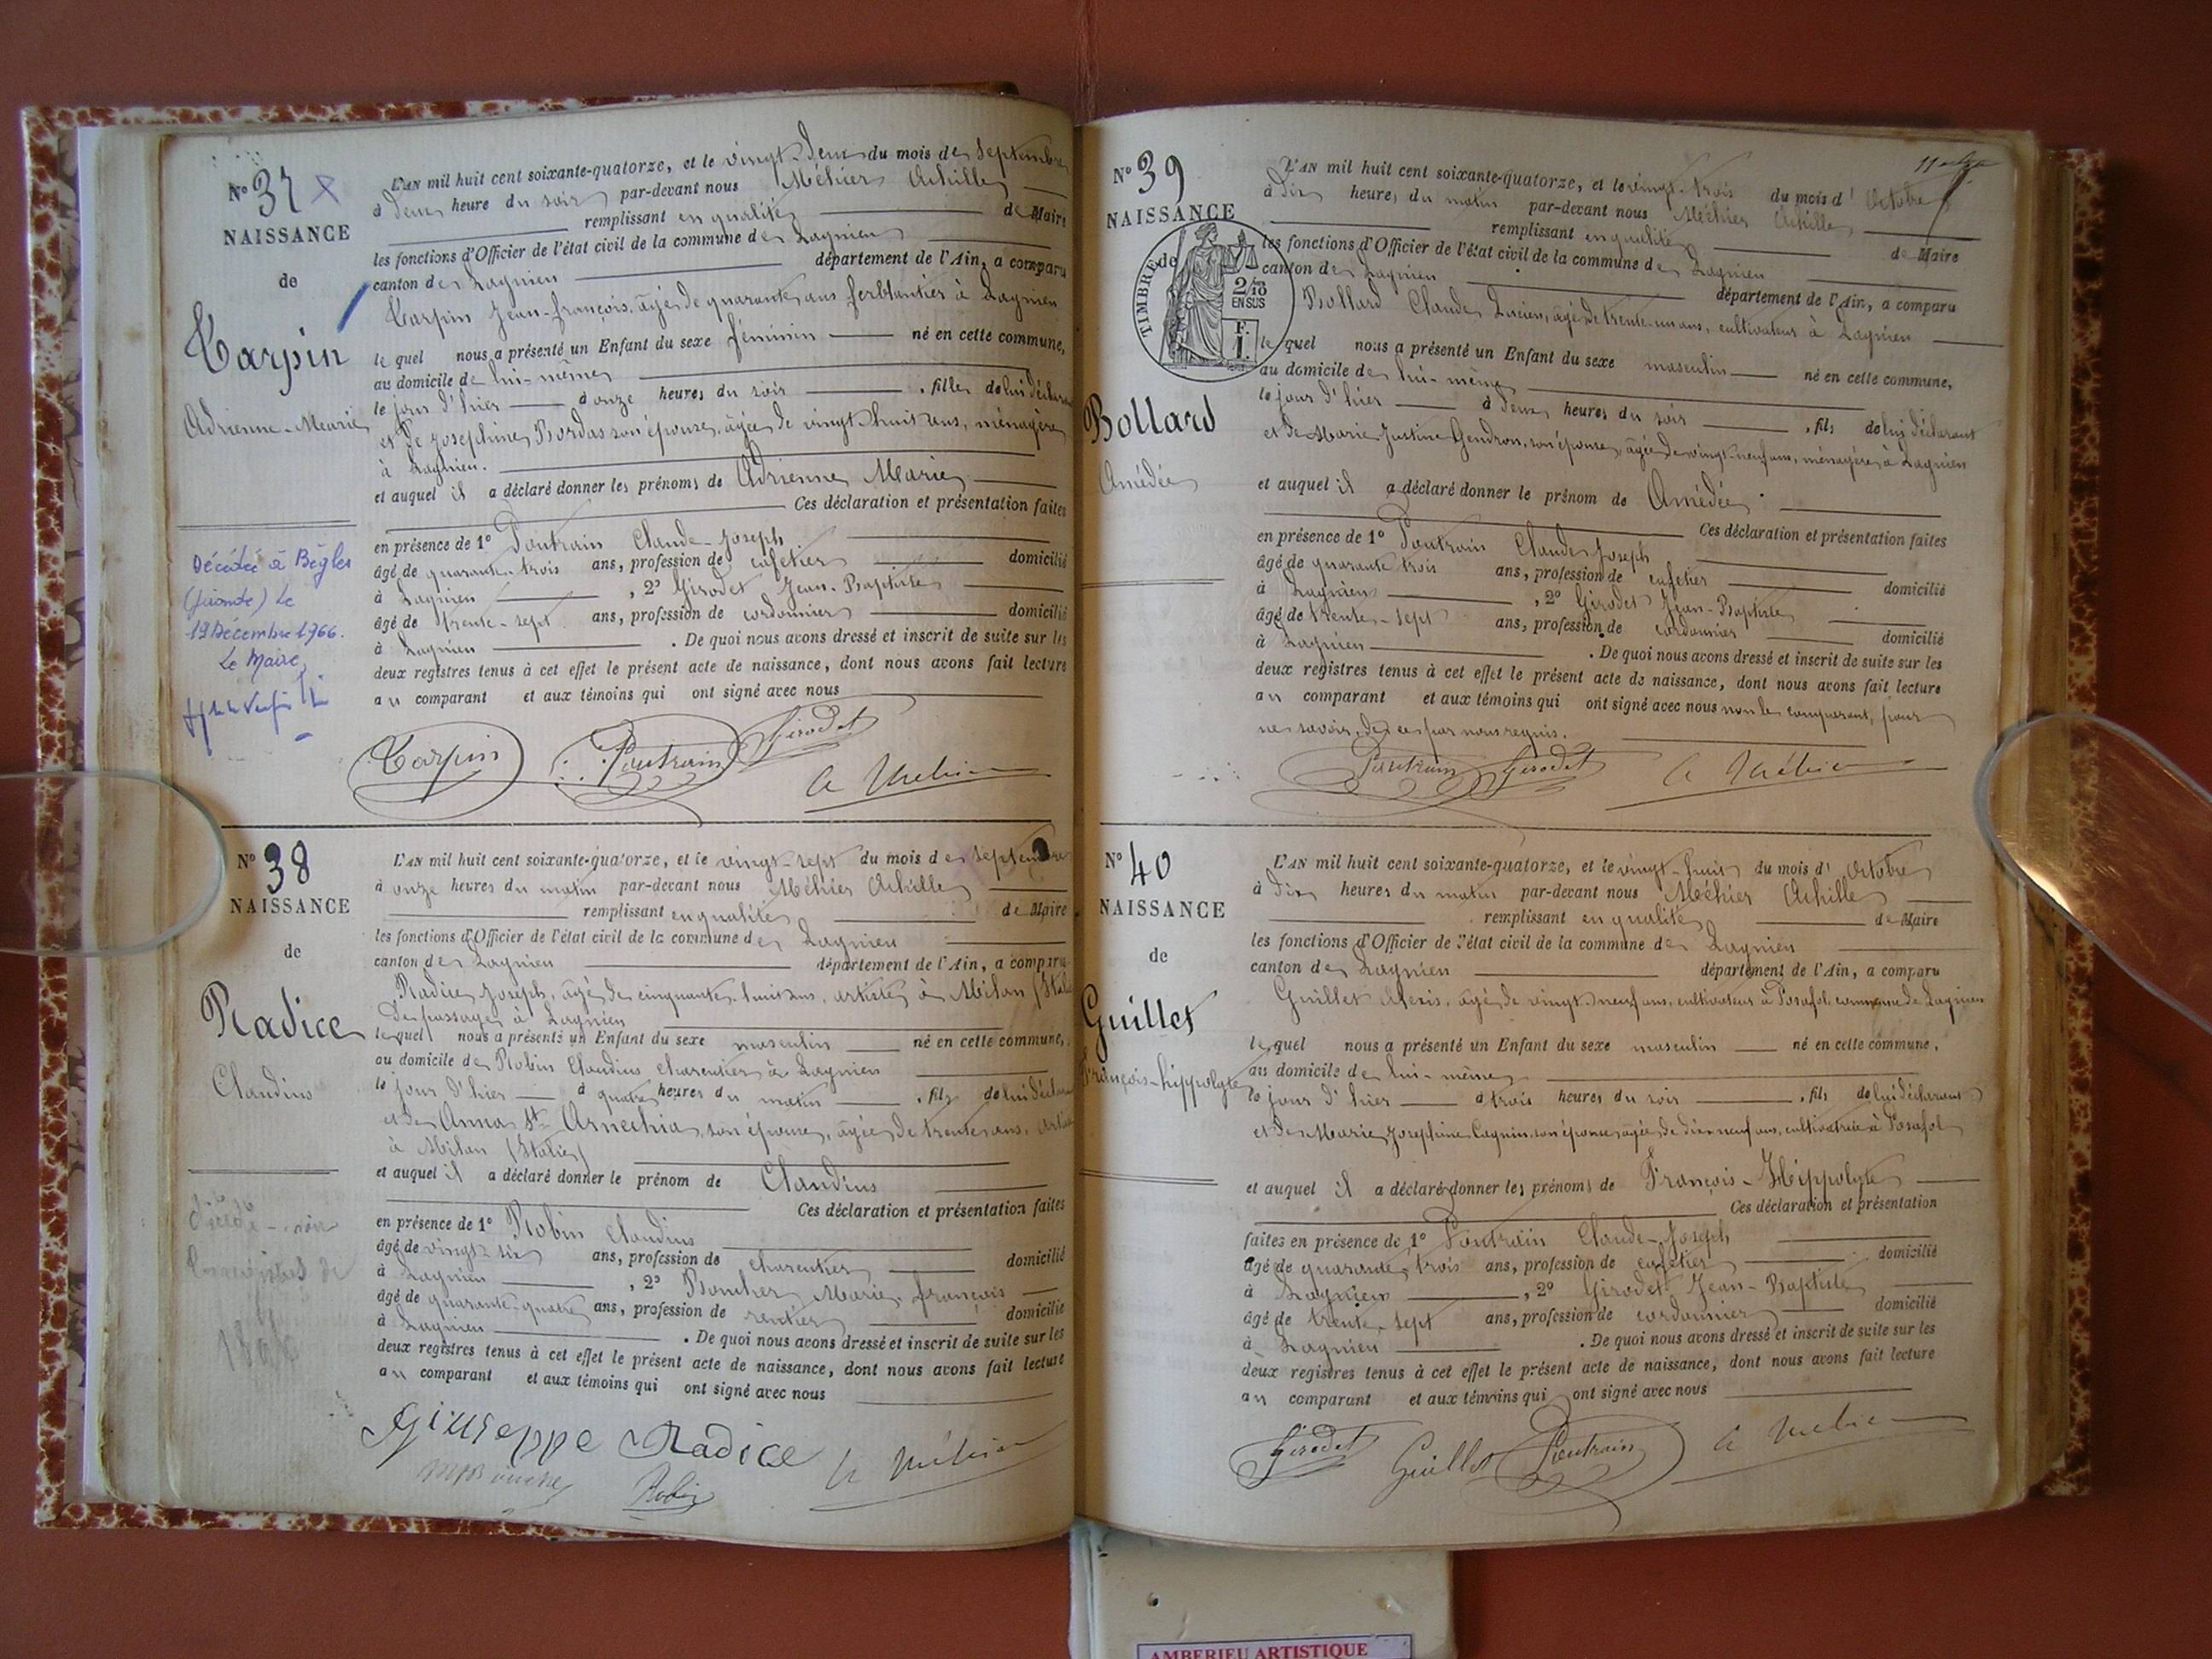 N° 37 x
NAISSANCE
de
Carpin
Adrienne-Marie
Décédée à Bègles
(Gironde) le
19 Décembre 1966.
Le Maire,
L'AN mil huit cent soixante-quatorze, et le vingt-deux du mois de septembre
à deux heure du soir par-devant nous Méhier Achille
remplissant en qualité de Maire
les fonctions d'Officier de l'état civil de la commune de Lagnieu
canton de Lagnieu département de l'Ain, a comparu
Carpin Jean-françois, âgé de quarante ans ferblantier à Lagnieu
le quel nous a présenté un Enfant du sexe féminin né en cette commune,
au domicile de lui-même
le jour d'hier à onze heures du soir , fille de lui déclarant
et de Josephine Bordas son épouse, âgée de vingt-huit ans, ménagère
à Lagnieu.
et auquel il a déclaré donner les prénoms de Adrienne Marie
Ces déclaration et présentation faites
en présence de 1° Poutrain Claude-Joseph
âgé de quarante-trois ans, profession de cafetier domicilié
à Lagnieu , 2° Girodet Jean-Baptiste
âgé de trente-sept ans, profession de cordonnier domicilié
à Lagnieu . De quoi nous avons dressé et inscrit de suite sur les
deux registres tenus à cet effet le présent acte de naissance, dont nous avons fait lecture
au comparant et aux témoins qui ont signé avec nous
Carpin Poutrain Girodet
A Méhier
N° 38
NAISSANCE
de
Radice
Claudius
L'AN mil huit cent soixante-quatorze, et le vingt-sept du mois de septembre
à onze heures du matin par-devant nous Méhier Achille
remplissant en qualité de Maire
les fonctions d'Officier de l'état civil de la commune de Lagnieu
canton de Lagnieu département de l'Ain, a comparu
Radice Joseph, âgé de cinquante-huit ans, artiste à Milan (Italie
de passage à Lagnieu
le quel nous a présenté un Enfant du sexe masculin né en cette commune,
au domicile de Robin Claudius charcutier à Lagnieu
le jour d'hier à quatre heures du matin , fils de lui déclarant
et de Anna Ste Arnechia, son épouse, âgée de trente ans, artiste
à Milan (Italie)
et auquel il a déclaré donner le prénom de Claudius
Ces déclaration et présentation faites
en présence de 1° Robin Claudius
âgé de vingt-six ans, profession de charcutier domicilié
à Lagnieu , 2° Boucher Marie-françois
âgé de quarante-quatre ans, profession de rentier domicilié
à Lagnieu . De quoi nous avons dressé et inscrit de suite sur les
deux registres tenus à cet effet le présent acte de naissance, dont nous avons fait lecture
au comparant et aux témoins qui ont signé avec nous
Giuseppe Radice A Méhier
Robin
N° 39
NAISSANCE
de
TIMBRE
2/10
EN SUS
F.
1.
Bollard
Amédée
L'AN mil huit cent soixante-quatorze, et le vingt-trois du mois d'Octobre
à dix heures du matin par-devant nous Méhier Achille
remplissant en qualité de Maire
les fonctions d'Officier de l'état civil de la commune de Lagnieu
canton de Lagnieu département de l'Ain, a comparu
Bollard Claude Lucien, âgé de trente-un ans, cultivateur à Lagnieu
le quel nous a présenté un Enfant du sexe masculin né en cette commune,
au domicile de lui-même
le jour d'hier à deux heures du soir , fils de lui déclarant
et de Marie Justine Gendron, son épouse, âgée de vingt-neuf ans, ménagère à Lagnieu
et auquel il a déclaré donner le prénom de Amédée.
Ces déclaration et présentation faites
en présence de 1° Poutrain Claude Joseph
âgé de quarante trois ans, profession de cafetier domicilié
à Lagnieu , 2° Girodet Jean-Baptiste
âgé de trente-sept ans, profession de cordonnier domicilié
à Lagnieu . De quoi nous avons dressé et inscrit de suite sur les
deux registres tenus à cet effet le présent acte de naissance, dont nous avons fait lecture
au comparant et aux témoins qui ont signé avec nous non le comparant, pour
ne savoir, de ce par nous requis.
Poutrain Girodet A Méhier
N° 40
NAISSANCE
de
Guillet
François-hippolyte
L'AN mil huit cent soixante-quatorze, et le vingt-huit du mois d'Octobre
à dix heures du matin par-devant nous Méhier Achille
remplissant en qualité de Maire
les fonctions d'Officier de l'état civil de la commune de Lagnieu
canton de Lagnieu département de l'Ain, a comparu
Guillet Alexis, âgé de vingt-neuf ans, cultivateur à Posafol commune de Lagnieu
le quel nous a présenté un Enfant du sexe masculin né en cette commune,
au domicile de lui-même
le jour d'hier à trois heures du soir , fils de lui déclarant
et de Marie Josephine Cagnin, son épouse, âgée de dix-neuf ans, cultivatrice à Posafol
et auquel il a déclaré donner les prénoms de François-Hippolyte
Ces déclaration et présentation
faites en présence de 1° Poutrain Claude-Joseph
âgé de quarante-trois ans, profession de cafetier domicilié
à Lagnieu , 2° Girodet Jean-Baptiste
âgé de trente-sept ans, profession de cordonnier domicilié
à Lagnieu . De quoi nous avons dressé et inscrit de suite sur les
deux registres tenus à cet effet le présent acte de naissance, dont nous avons fait lecture
au comparant et aux témoins qui ont signé avec nous
Girodet Guillet Poutrain A Méhier
AMBERIEU ARTISTIQUE